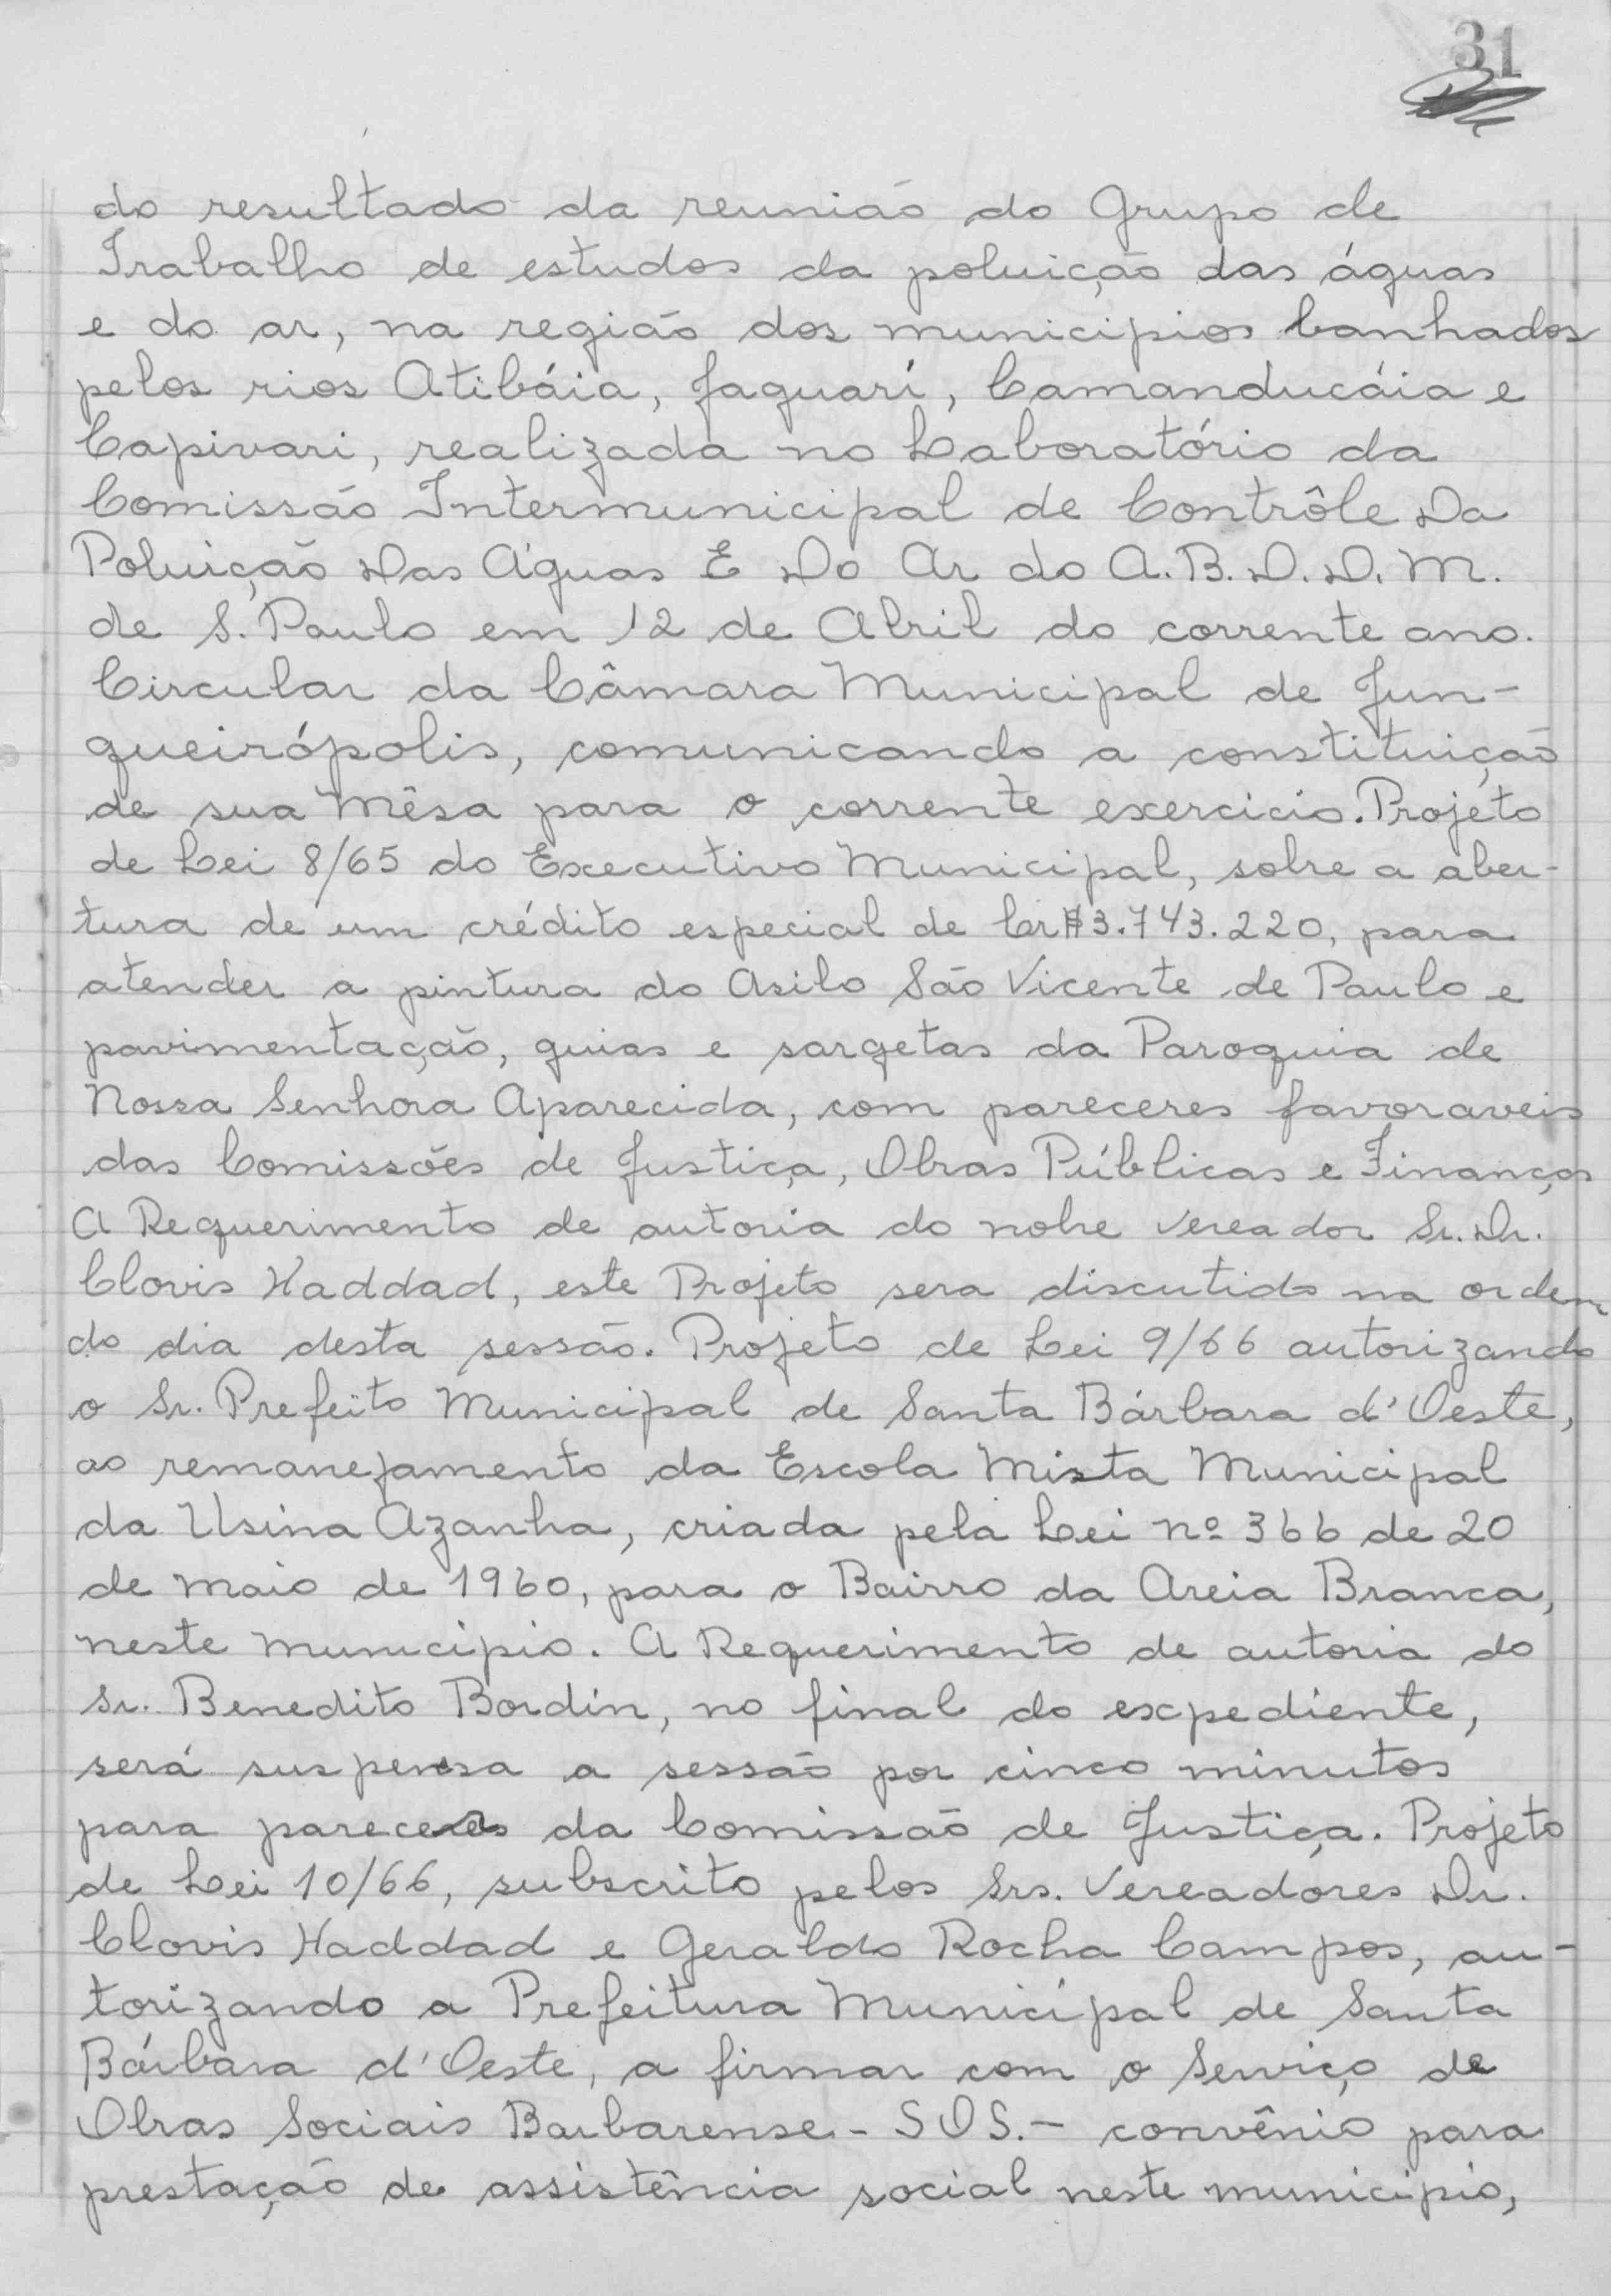 31
do resultado da reunião do Grupo de
Trabalho de estudos da poluição das águas
e do ar, na região dos municipios banhados
pelos rios Atibáia, Jaguarí, Camanducáia e
Capivari, realizada no Laboratório da
Comissão Intermunicipal de Contrôle Da
Poluição Das Águas E Do Ar do A.B.D.D.M.
de S. Paulo em 12 de Abril do corrente ano.
Circular da Câmara Municipal de Jun-
queirópolis, comunicando a constituição
de sua Mêsa para o corrente exercicio. Projéto
de Lei 8/65 do Executivo Municipal, sobre a aber-
tura de um crédito especial de Cr$3.743.220, para
atender a pintura do Asilo São Vicente de Paulo e
pavimentação, guias e sargetas da Paroquia de
Nossa Senhora Aparecida, com pareceres favoraveis
das Comissões de Justiça, Obras Públicas e Finanças
A Requerimento de autoria do nobre Vereador Sr. Dr.
Clovis Haddad, este Projeto sera discutido na ordem
do dia desta sessão. Projeto de Lei 9/66 autorizando
o Sr. Prefeito Municipal de Santa Bárbara d'Oeste,
ao remanejamento da Escola Mista Municipal
da Usina Azanha, criada pela Lei nº 366 de 20
de maio de 1960, para o Bairro da Areia Branca,
neste municipio. A Requerimento de autoria do
Sr. Benedito Bordin, no final do expediente,
será suspensa a sessão por cinco minutos
para pareceres da Comissão de Justiça. Projeto
de Lei 10/66, subscrito pelos Srs. Vereadóres Dr.
Clovis Haddad e Geraldo Rocha Campos, au-
torizando a Prefeitura Municipal de Santa
Bárbara d'Oeste, a firmar com o Serviço de
Obras Sociais Barbarense - SOS. - convênio para
prestação de assistência social neste municipio,